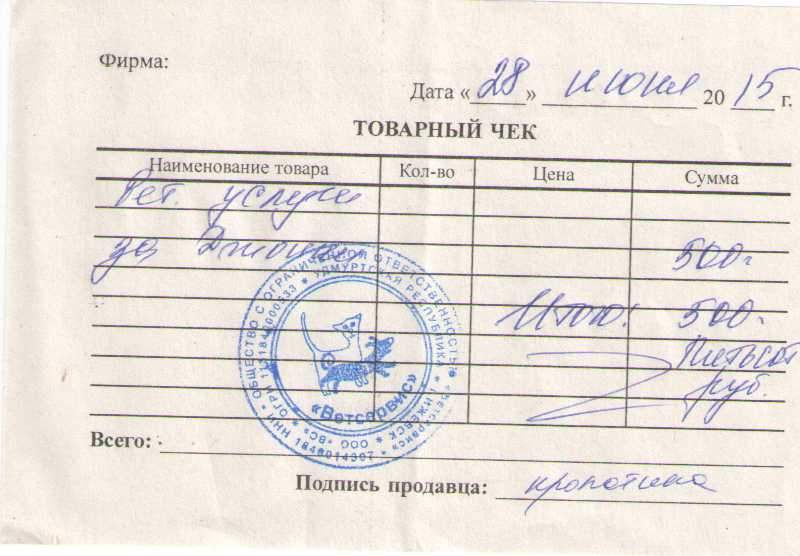 Фирма:
Дата «28» июня 2015 г.
ТОВАРНЫЙ ЧЕК
Наименование товара Кол-во Цена Сумма
Вет. услуги
за 500-
Итого: 500-
Пятьсот
руб.
ОБЩЕСТВО С ОГРАНИЧЕННОЙ ОТВЕТСТВЕННОСТЬЮ
УДМУРТСКАЯ РЕСПУБЛИКА
ИЖЕВСК
«Ветсервис»
ООО «ВС»
ОГРН
ИНН
Всего:
Подпись продавца: кропотина